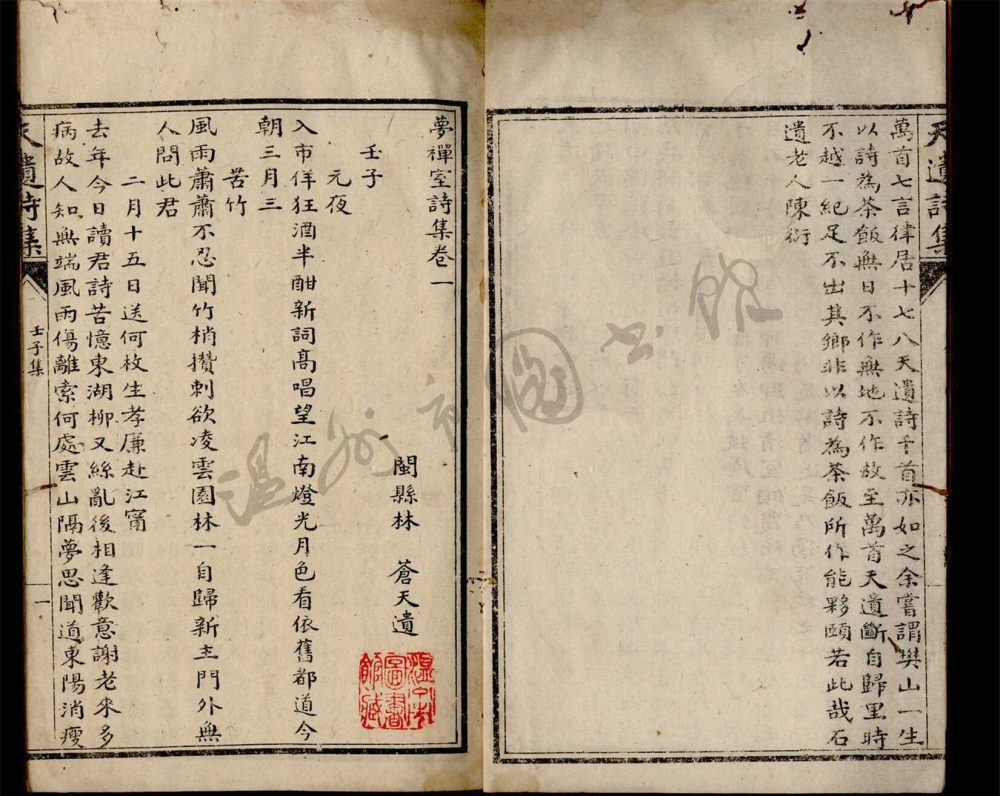 天遺詩集
萬首七言律居十七八天遺詩千首亦如之余嘗謂樊山一生
以詩為茶飯無日不作無地不作故至萬首天遺斷自歸里時
不越一紀足不出其鄉非以詩為茶飯所作能夥頤若此哉石
遺老人陳衍
夢禪室詩集卷一
閩縣林 蒼天遺
壬子
元夜
入市佯狂酒半酣新詞高唱望江南燈光月色看依舊都道今
朝三月三
苦竹
風雨蕭蕭不忍聞竹梢攢刺欲凌雲園林一自歸新主門外無
人問此君
二月十五日送何枚生孝廉赴江甯
去年今日讀君詩苦憶東湖柳又絲亂後相逢歡意謝老來多
病故人知無端風雨傷離索何處雲山隔夢思聞道東陽消瘦
天遺詩集
壬子集
一
溫州市圖書館藏
溫州市圖書館